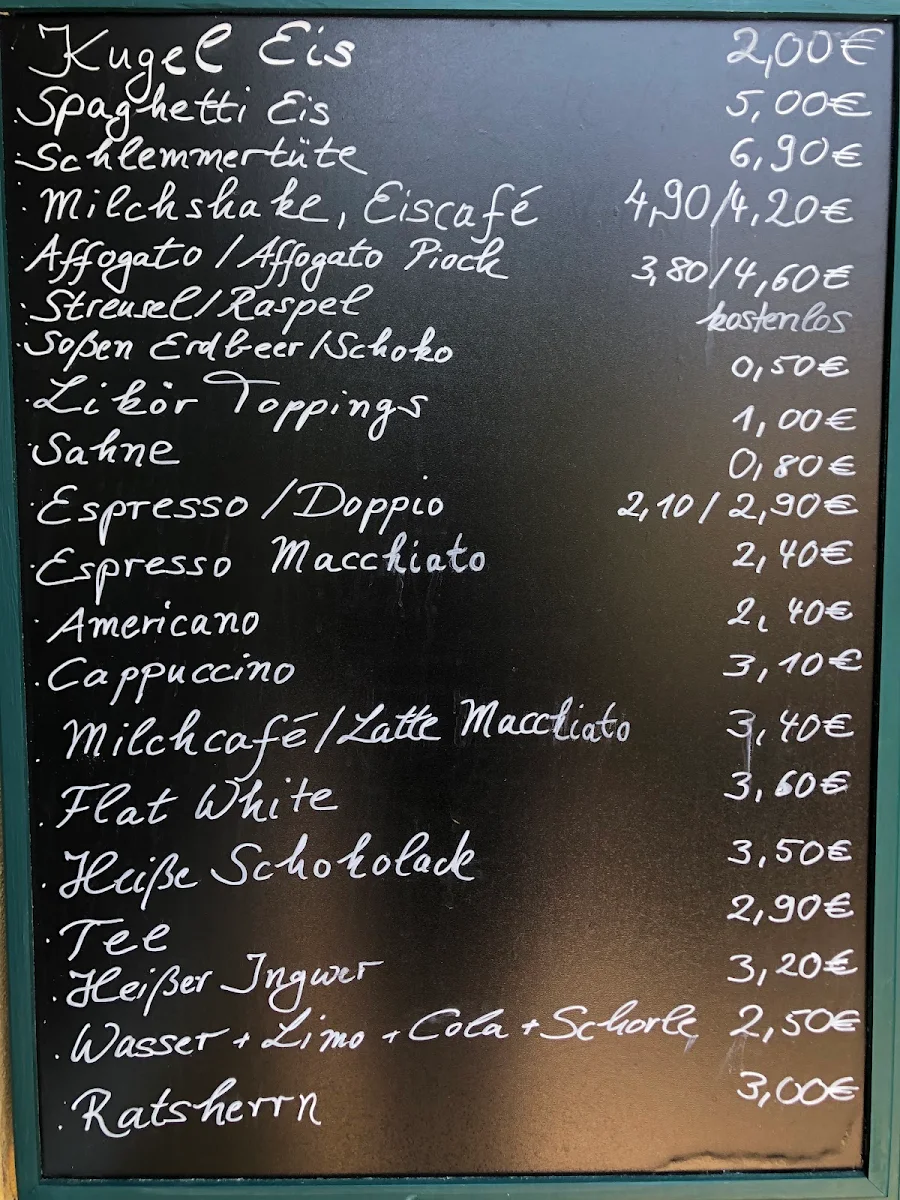 Kugel Eis 2,00€
Spaghetti Eis 5,00€
Schlemmertüte 6,90€
Milchshake, Eiscafé 4,90/4,20€
Affogato / Affogato Piock 3,80/4,60€
Streusel/Raspel kostenlos
Soßen Erdbeer/Schoko 0,50€
Likör Toppings 1,00€
Sahne 0,80€
Espresso / Doppio 2,10 / 2,90€
Espresso Macchiato 2,40€
Americano 2,40€
Cappuccino 3,10€
Milchcafé/Latte Macchiato 3,40€
Flat White 3,60€
Heiße Schokolade 3,50€
Tee 2,90€
Heißer Ingwer 3,20€
Wasser + Limo + Cola + Schorle 2,50€
Ratsherrn 3,00€